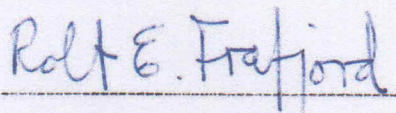 Rolf E. Frafjord